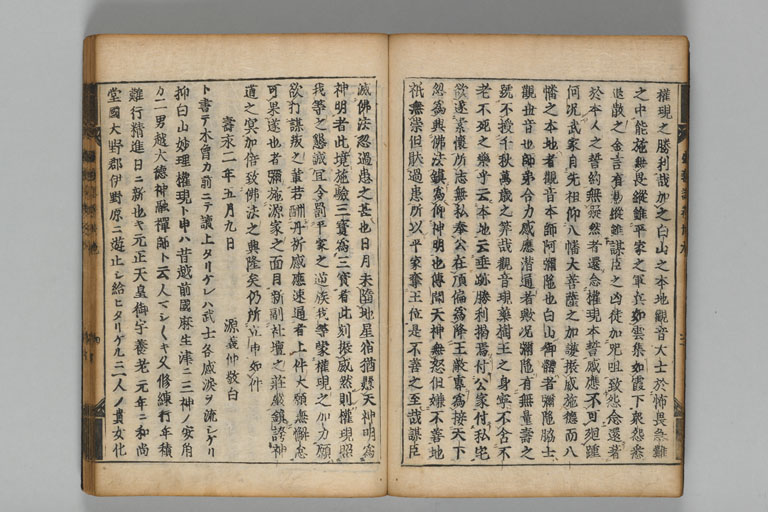 權現之勝利哉加之白山之本地觀音大士於怖畏急難
之中能施無畏縱雖平家之軍兵如雲集如霞下衆怨悉
退散之金言有憑縱雖謀臣之凶徒加咒咀致怨念還著
於本人之誓約無疑然者還念權現本誓感應不可廻踵
何况武家自先祖仰八幡大菩薩之加護振威施德而八
幡之本地者觀音本師阿彌陀也白山御體者彌陀脇士
觀世音也師弟合力感應潜通者歟况彌陀有無量壽之
號不授千秋萬歳之筭哉觀音現藥樹王之身寧不含不
老不死之藥乎云本地云垂跡勝利掲焉付公家付私宅
欲遂素懷所志無私奉公在頂偏爲降王敵專爲接天下
忽爲興佛法鎮爲仰神明也傳聞天神無怒但嫌不善地
祇無祟但猒過患所以平家奪王位是不善之至哉謀臣
滅佛法忍過患之甚也日月未墮地星宿猶懸天神明爲
神明者此境施驗三寶爲三寶者此刻振威然則權現照
我等之懇誠宜令罰平家之逆族我等蒙權現之加力願
欲打謀叛之輩若酬丹祈感應速通者上件大願無懈怠
可果遂也者彌施源家之面目新副社壇之莊嚴鎮誇神
道之冥加倍致佛法之興隆矣仍所立申如件
壽永二年五月九日 源義仲敬白
ト書テ木曾カ前ニテ讀上タリケレハ武士各感涙ヲ流シケリ
抑白山妙理權現ト申ハ昔越前國麻生津ニ三神ノ安角
カ二男越大德神融禪師ト云人マシ〱キ又修練行年積
難行精進日ニ新也キ元正天皇御宇養老元年ニ和尚
堂國大野郡伊野原ニ遊止シ給ヒタリケルニ一人ノ貴女化